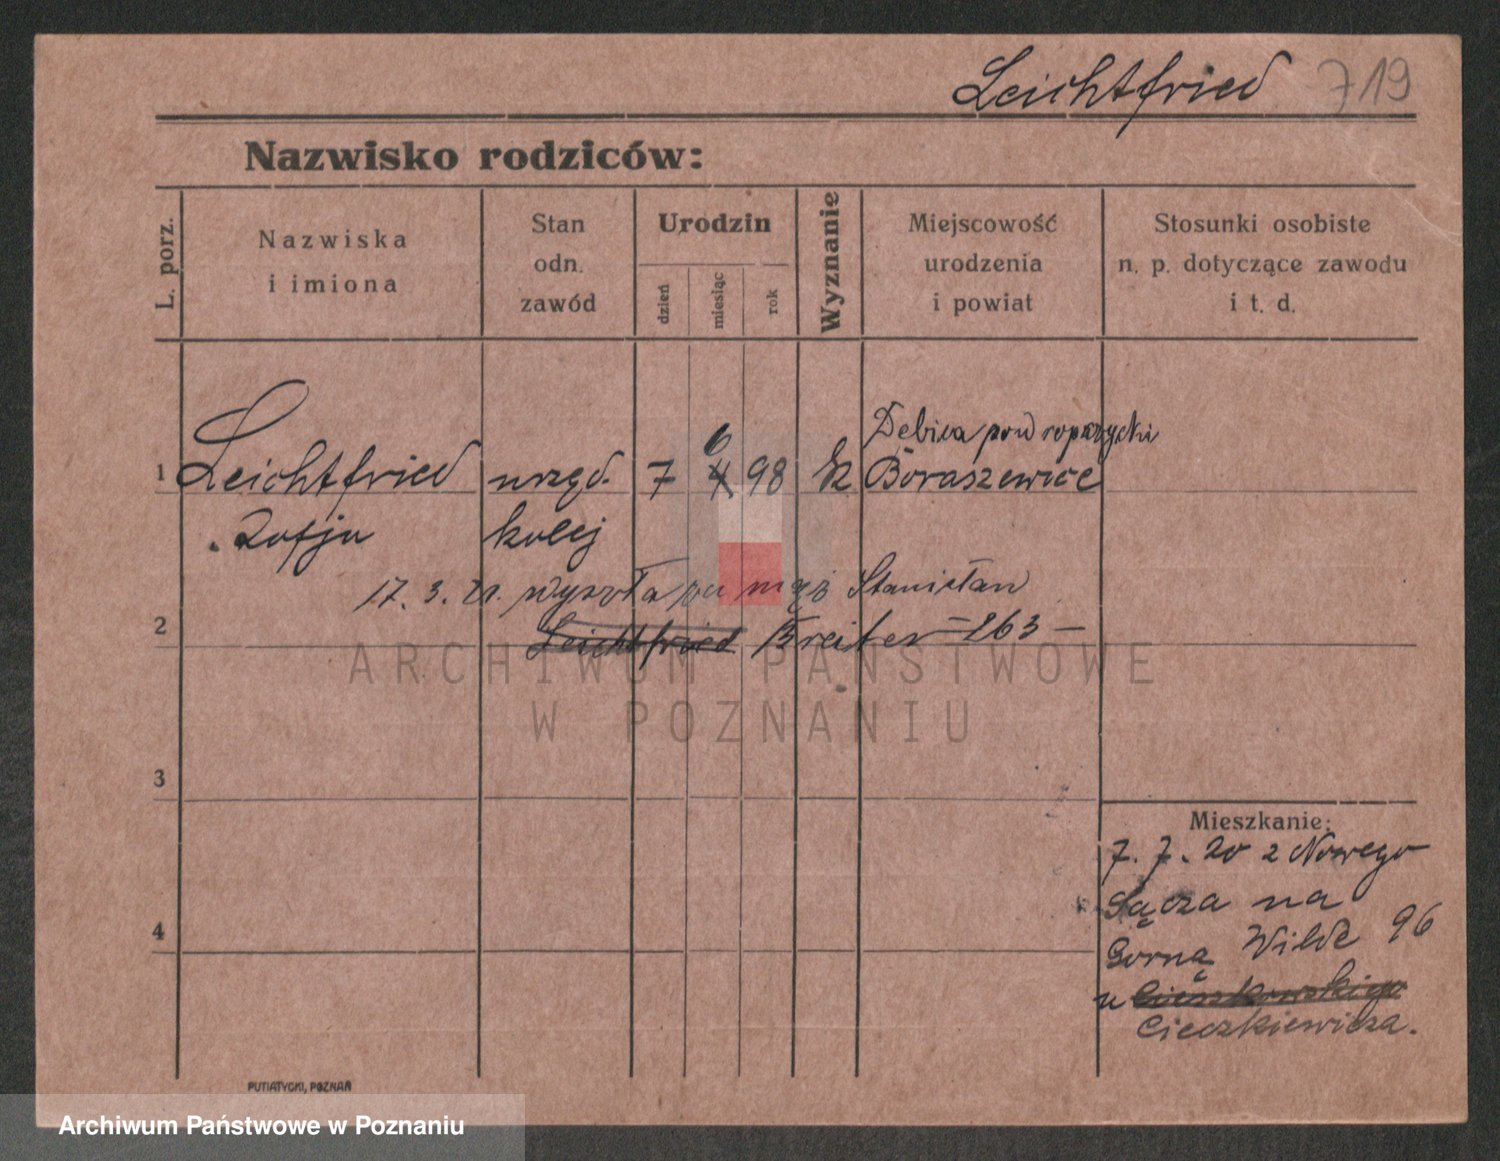 Leichtfried 719
Nazwisko rodziców:
L. porz.
Nazwiska
i imiona
Stan
odn.
zawód
Urodzin
dzień
miesiąc
rok
Wyznanie
Miejscowość
urodzenia
i powiat
Stosunki osobiste
n. p. dotyczące zawodu
i t. d.
Dębica pow ropczycki
6
1 Leichtfried urzęd. 7 4 98 k Boraszewice
Zofja kolej
17. 3. 21. wyszła za mąż Stanisław
2 Leichtfried Breiter – 263 –
ARCHIWUM PAŃSTWOWE
W POZNANIU
3
4
Mieszkanie:
7. 7. 20 z Nowego
Sącza na
Górną Wildę 96
u Cieszkowskiego
Cieczkiewicza.
PUTIATYCKI, POZNAŃ
Archiwum Państwowe w Poznaniu